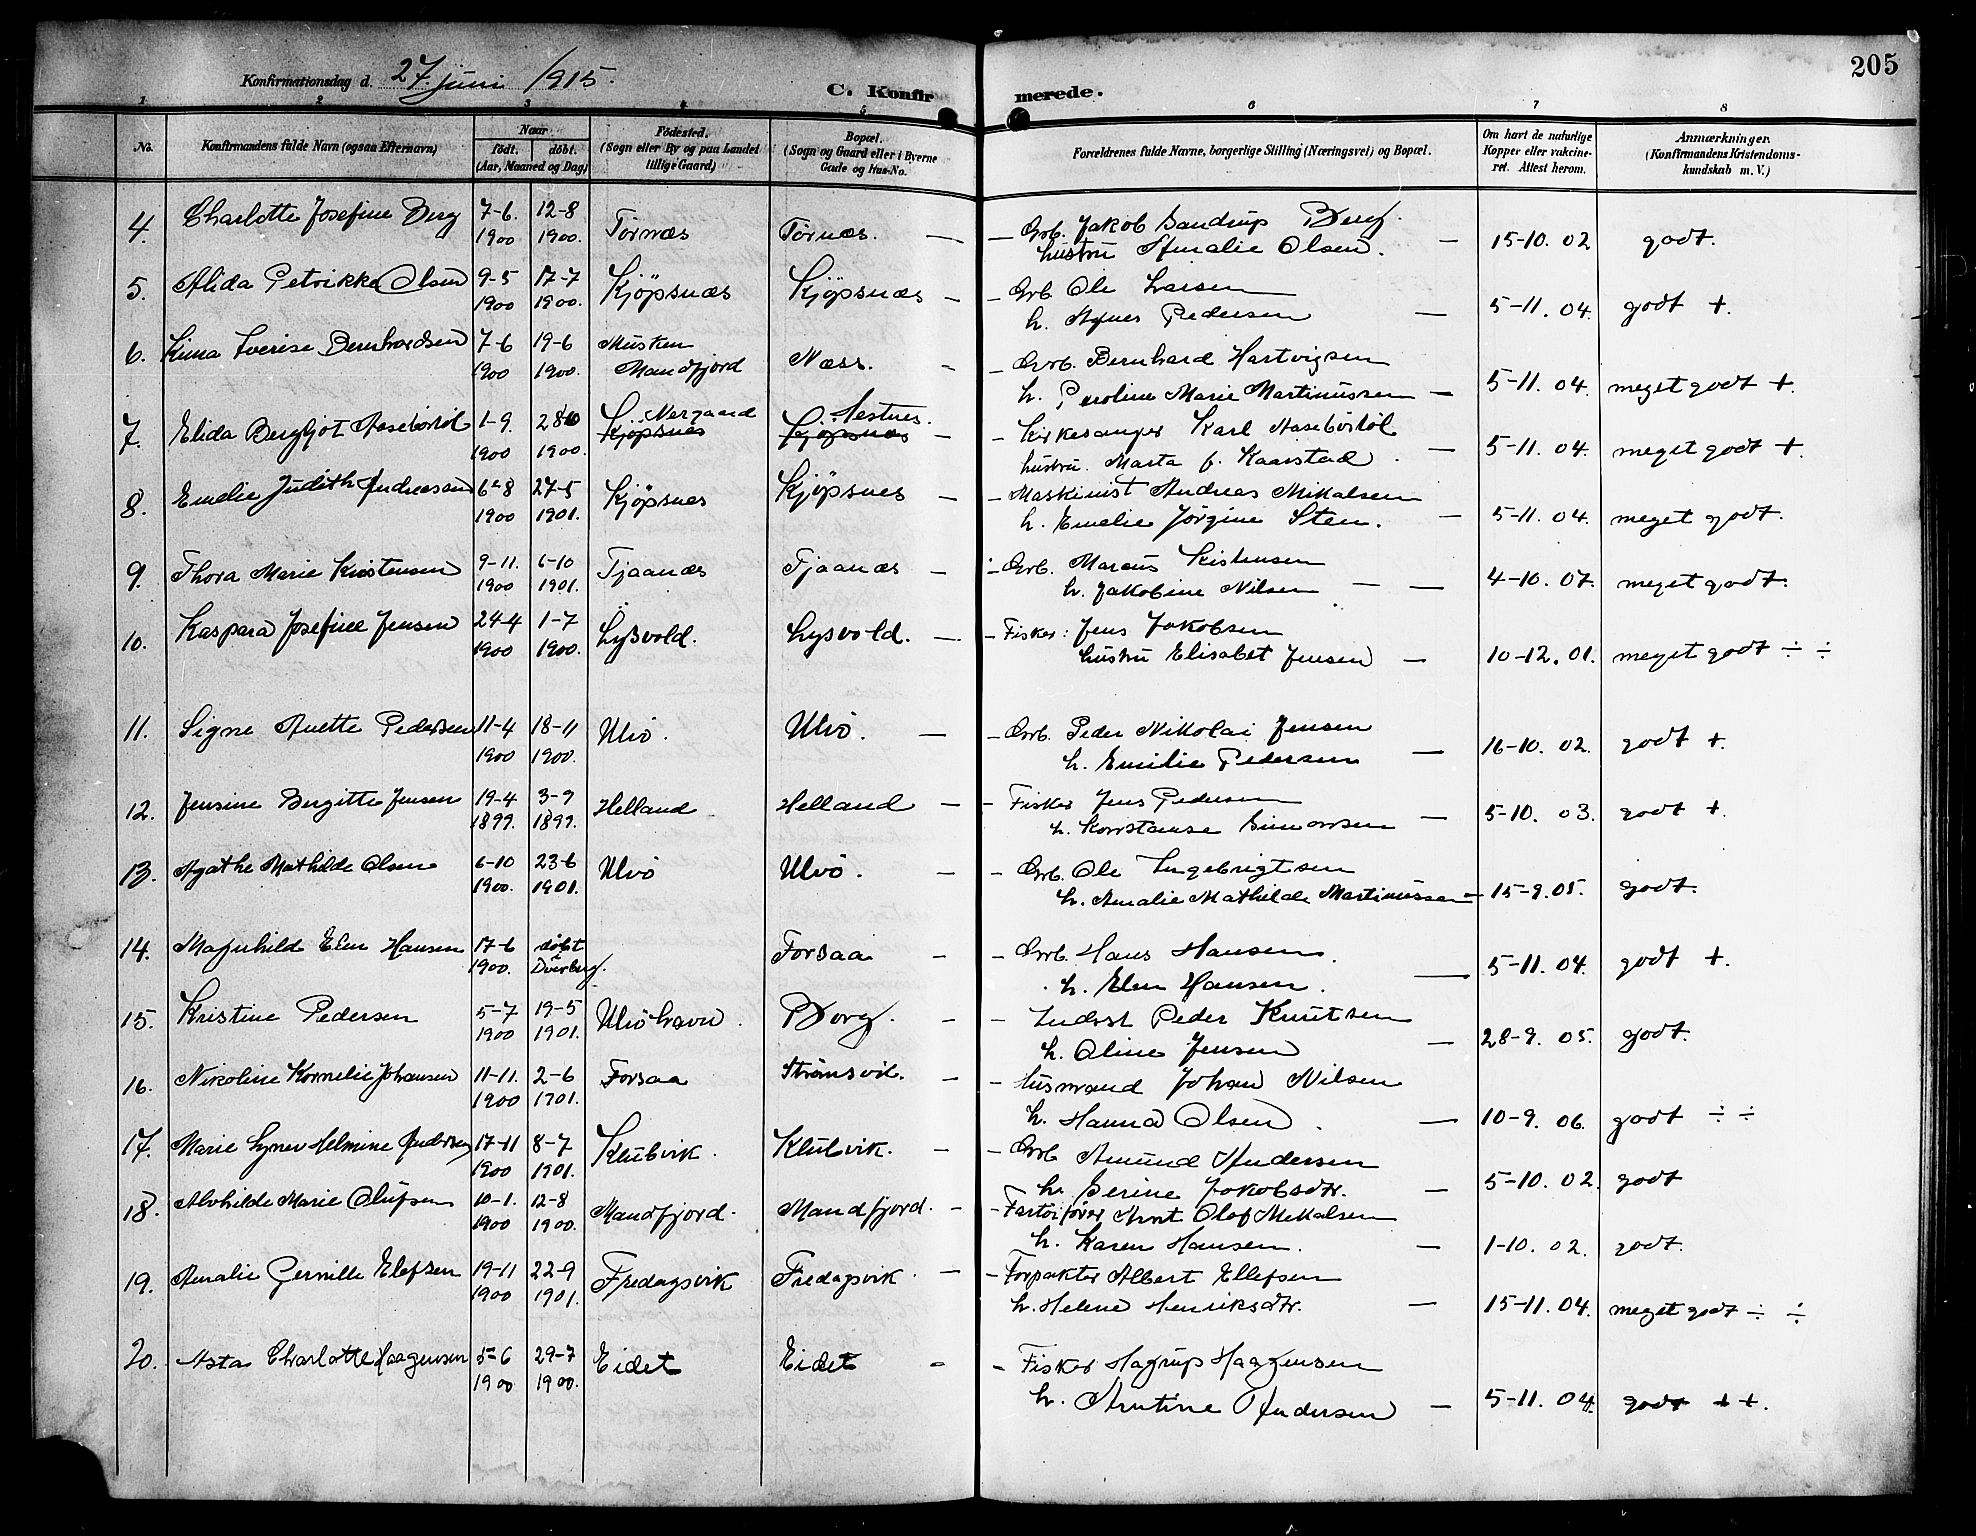 205
Konfirmationsdag d. 27. juni 1915.
C. Konfirmerede.
1 2 3 4 5 6 7 8
No. Konfirmandens fulde Navn (ogsaa Efternavn) Naar födt. döbt. (Aar, Maaned og Dag) Födested. (Sogn eller By og paa Landet tillige Gaard) Bopæl. (Sogn og Gaard eller i Byerne Gade og Hus-No. Forældrenes fulde Navne, borgerlige Stilling (Næringsvei) og Bopæl. Om havt de naturlige Kopper eller vakcineret. Attest herom. Anmærkninger. (Konfirmandens Kristendomskundskab m. V.)
4. Charlotte Josefine Berg 7-6. 12-8 Tørnæs Tørnæs. — Grb. Jakob Sandrup Berg.
1900 1900. hustru Amalie Olsen. — 15-10. 02 godt.
5. Alida Petrikke Olsen 9-5 17-7 Kjöpsnæs Kjöpsnæs — Grb. Ole Larsen
1900 1900. h. Agnes Pedersen — 5-11. 04. godt +.
6. Bernhardsen 7-6 19-6 Musken Mandfjord Næss. - Grb. Bernhard Hartvigsen
1900 1900. h. Marie Martinussen — 5-11. 04. meget godt +.
7. Elida Bergljot Aasebøstøl 1-9. 28-10 Kjöpsnes Nergaard Kjöpsnes Sestnes. — Kirkesanger Karl Aasebøstøl
1900 1900. hustru. Marta f. Kaarstad. — 5-11. 04. meget godt +.
8. Emelie Judith Andreasen 6-8 27-5 Kjöpsnes Kjöpsnes — Maskinist Andreas Mikalsen
1900 1901. h. Emelie Jörgine Sten. — 5-11. 04. meget godt.
9. Thora Marie Kristensen 9-11. 6-10 Tjaanæs Tjaanæs — Grb. Marcus Kistensen
1900 1901. h. Jakobine Nilsen — 4-10. 07. meget godt.
10. Kaspara Josefine Jensen 24-4 1-7 Lysvold. Lysvold. — Fisker: Jens Jakobsen
1900 1900. hustru Elisabet Jensen — 10-12. 01. meget godt ÷ ÷
11. Signe Anette Pedersen 11-4 18-11 Ulvö. Ulvö. — Grb. Peder Nikolai Jensen
1900 1900. h. Emilie Pedersen — 16-10. 02. godt +.
12. Jensine Bergitte Jensen 19-4 3-9 Helland Helland — Fisker Jens Pedersen
1899. 1899. h. Konstanse Simonsen — 5-10. 03. godt +.
13. Agathe Mathilde Olsen 6-10 23-6 Ulvö Ulvö. — Grb. Ole Ingebrigtsen
1900. 1901. h. Amalie Mathilde Martinussen — 15-9. 05. godt.
14. Magnhild Elen Hansen 17-6 döbt i Dverberg. Forsaa — Grb. Hans Hansen.
1900. h. Elen Hansen. — 5-11. 04. godt +.
15. Kristine Pedersen 5-7 19-5 Ulvöhavn. Borg. — Inderst Peder Knutsen
1900 1901. h. Oline Jensen — 28-9. 05. godt.
16. Nikoline Kornelie Johansen 11-11. 2-6 Forsaa Strömsvik. — Husmand Johan Nilsen
1900 1901. h. Hanna Olsen. — 10-9. 06. godt ÷ ÷
17. Marie Helmine Andersen 17-11 8-7 Klubvik. Klubvik. — Grb Amund Andersen
1900 1901. h. Serine Jakobsdtr. — 5-10. 02. godt
18. Alvhilde Marie Olufsen 10-1. 12-8 Mandfjord. Mandfjord. — Fartöiförer Arnt Olaf Mikalsen
1900 1900. h. Karen Hansen. — 1-10. 02. godt.
19. Amalie Elefsen 19-11 22-9 Fredagsvik Fredagsvik. — Forpakter Albert Ellefsen
1900 1901. h. Helene Henriksdtr. — 15-11. 04. meget godt ÷ ÷
20. Asta Charlotte Haagensen 5-6 29-7 Eidet Eidet — Fisker Hagrup Haagensen
1900 1900. h. Arntine Andersen — 5-11. 04. godt + +.